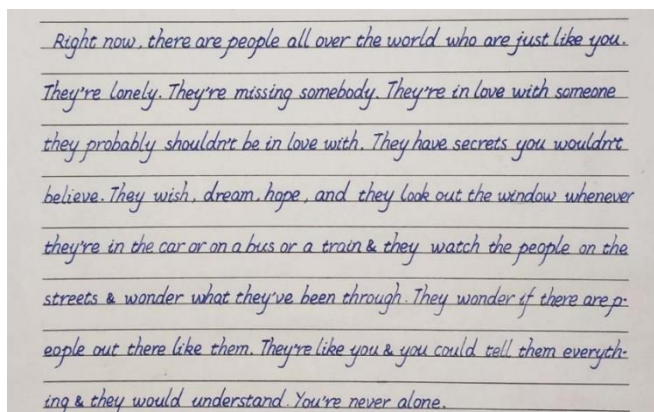 Right now, there are people all over the world who are just like you.
They're lonely. They're missing somebody. They're in love with someone
they probably shouldn't be in love with. They have secrets you wouldn't
believe. They wish, dream, hope, and they look out the window whenever
they're in the car or on a bus or a train & they watch the people on the
streets & wonder what they've been through. They wonder if there are p-
eople out there like them. They're like you & you could tell them everyth-
ing & they would understand. You're never alone.